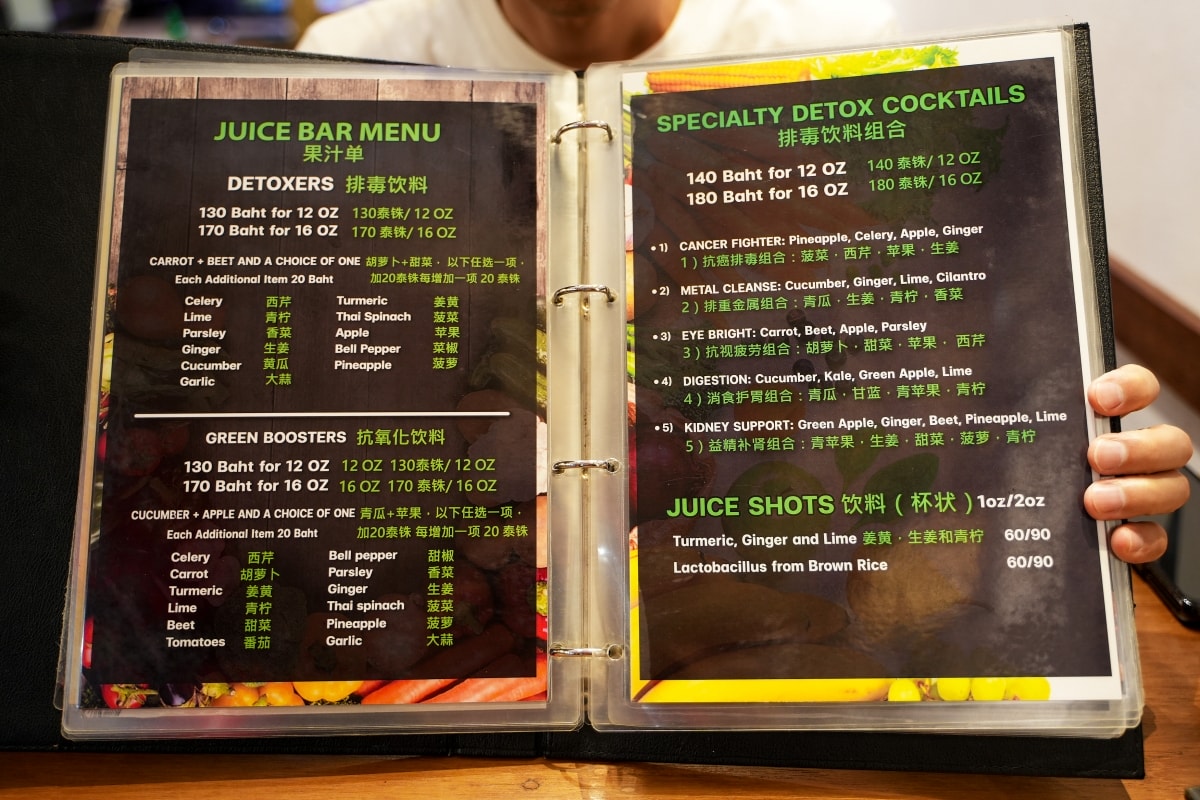 JUICE BAR MENU
果汁单
DETOXERS 排毒饮料
130 Baht for 12 OZ 130泰铢/ 12 OZ
170 Baht for 16 OZ 170 泰铢/ 16 OZ
CARROT + BEET AND A CHOICE OF ONE 胡萝卜+甜菜 · 以下任选一项 ·
Each Additional Item 20 Baht 加20泰铢每增加一项 20 泰铢
Celery 西芹 Turmeric 姜黄
Lime 青柠 Thai Spinach 菠菜
Parsley 香菜 Apple 苹果
Ginger 生姜 Bell Pepper 菜椒
Cucumber 黄瓜 Pineapple 菠萝
Garlic 大蒜
GREEN BOOSTERS 抗氧化饮料
130 Baht for 12 OZ 12 OZ 130泰铢/ 12 OZ
170 Baht for 16 OZ 16 OZ 170 泰铢/ 16 OZ
CUCUMBER + APPLE AND A CHOICE OF ONE 青瓜+苹果 · 以下任选一项 ·
Each Additional Item 20 Baht 加20泰铢 每增加一项 20 泰铢
Celery 西芹 Bell pepper 甜椒
Carrot 胡萝卜 Parsley 香菜
Turmeric 姜黄 Ginger 生姜
Lime 青柠 Thai spinach 菠菜
Beet 甜菜 Pineapple 菠萝
Tomatoes 番茄 Garlic 大蒜
SPECIALTY DETOX COCKTAILS
排毒饮料组合
140 Baht for 12 OZ 140 泰铢/ 12 OZ
180 Baht for 16 OZ 180 泰铢/ 16 OZ
• 1) CANCER FIGHTER: Pineapple, Celery, Apple, Ginger
1）抗癌排毒组合：菠菜 · 西芹 · 苹果 · 生姜
• 2) METAL CLEANSE: Cucumber, Ginger, Lime, Cilantro
2）排重金属组合：青瓜 · 生姜 · 青柠 · 香菜
• 3) EYE BRIGHT: Carrot, Beet, Apple, Parsley
3）抗视疲劳组合：胡萝卜 · 甜菜 · 苹果 · 西芹
• 4) DIGESTION: Cucumber, Kale, Green Apple, Lime
4）消食护胃组合：青瓜 · 甘蓝 · 青苹果 · 青柠
• 5) KIDNEY SUPPORT: Green Apple, Ginger, Beet, Pineapple, Lime
5）益精补肾组合：青苹果 · 生姜 · 甜菜 · 菠萝 · 青柠
JUICE SHOTS 饮料（杯状）1oz/2oz
Turmeric, Ginger and Lime 姜黄 · 生姜和青柠 60/90
Lactobacillus from Brown Rice 60/90